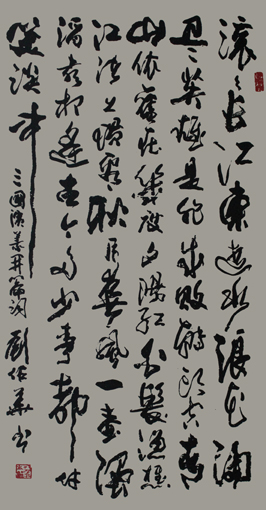 滚滚长江東逝水浪花淘
尽英雄是非成敗轉头空青
山依舊在幾度夕陽红白髮漁樵
江渚上慣看秋月春風一壶濁
酒喜相逢古今多少事都付
笑談中
三國演義開篇詞 劉 華书